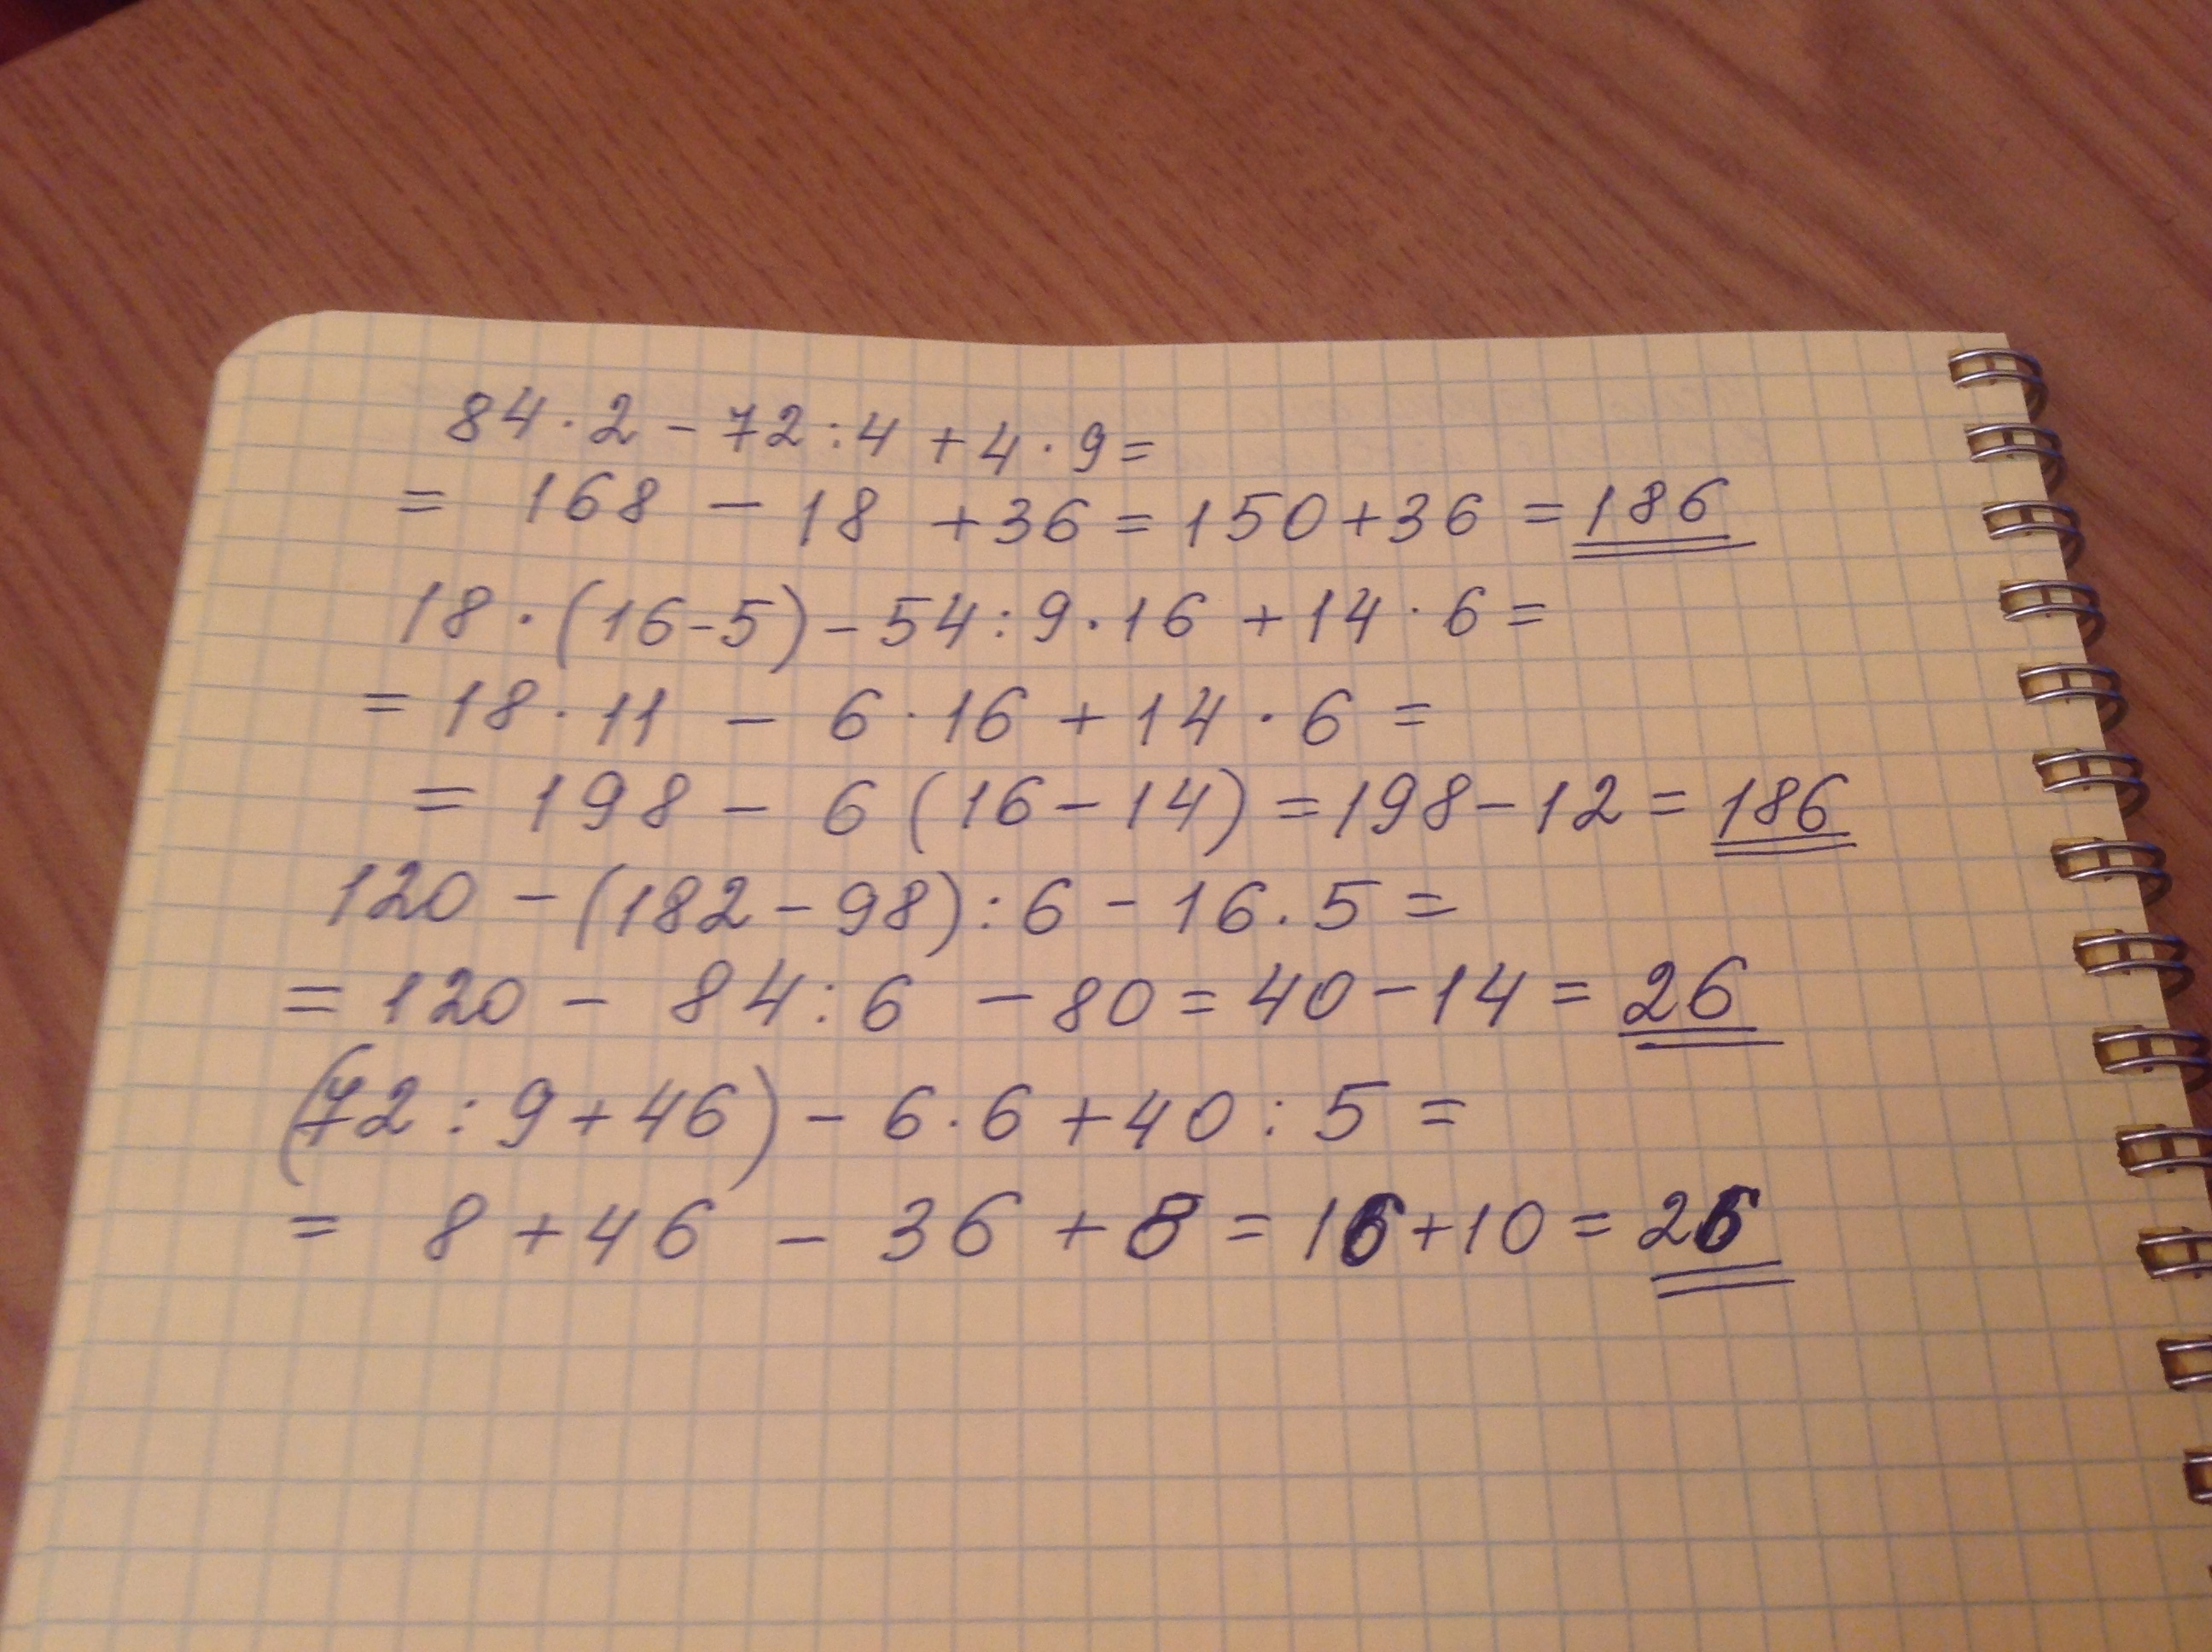 84·2 - 72:4 + 4·9=
= 168 - 18 +36 = 150+36 = 186
18·(16-5)-54:9·16 +14·6=
= 18·11 - 6·16 + 14·6 =
= 198 - 6(16-14) =198-12= 186
120 -(182-98):6 - 16·5=
= 120 - 84:6 - 80= 40-14 = 26
(72:9+46) - 6·6 +40:5 =
= 8 +46 - 36 + 8 = 16+10 = 26